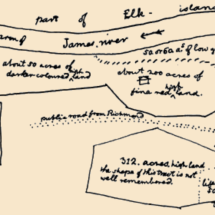 part of Elk island
James river
50 or 60 a.s of low g
about 50 acres of
darker coloured high land
about 200 acres of
fine red high land.
public road from Richmond
312. acres high land
the shape of this tract is not
well remembered.